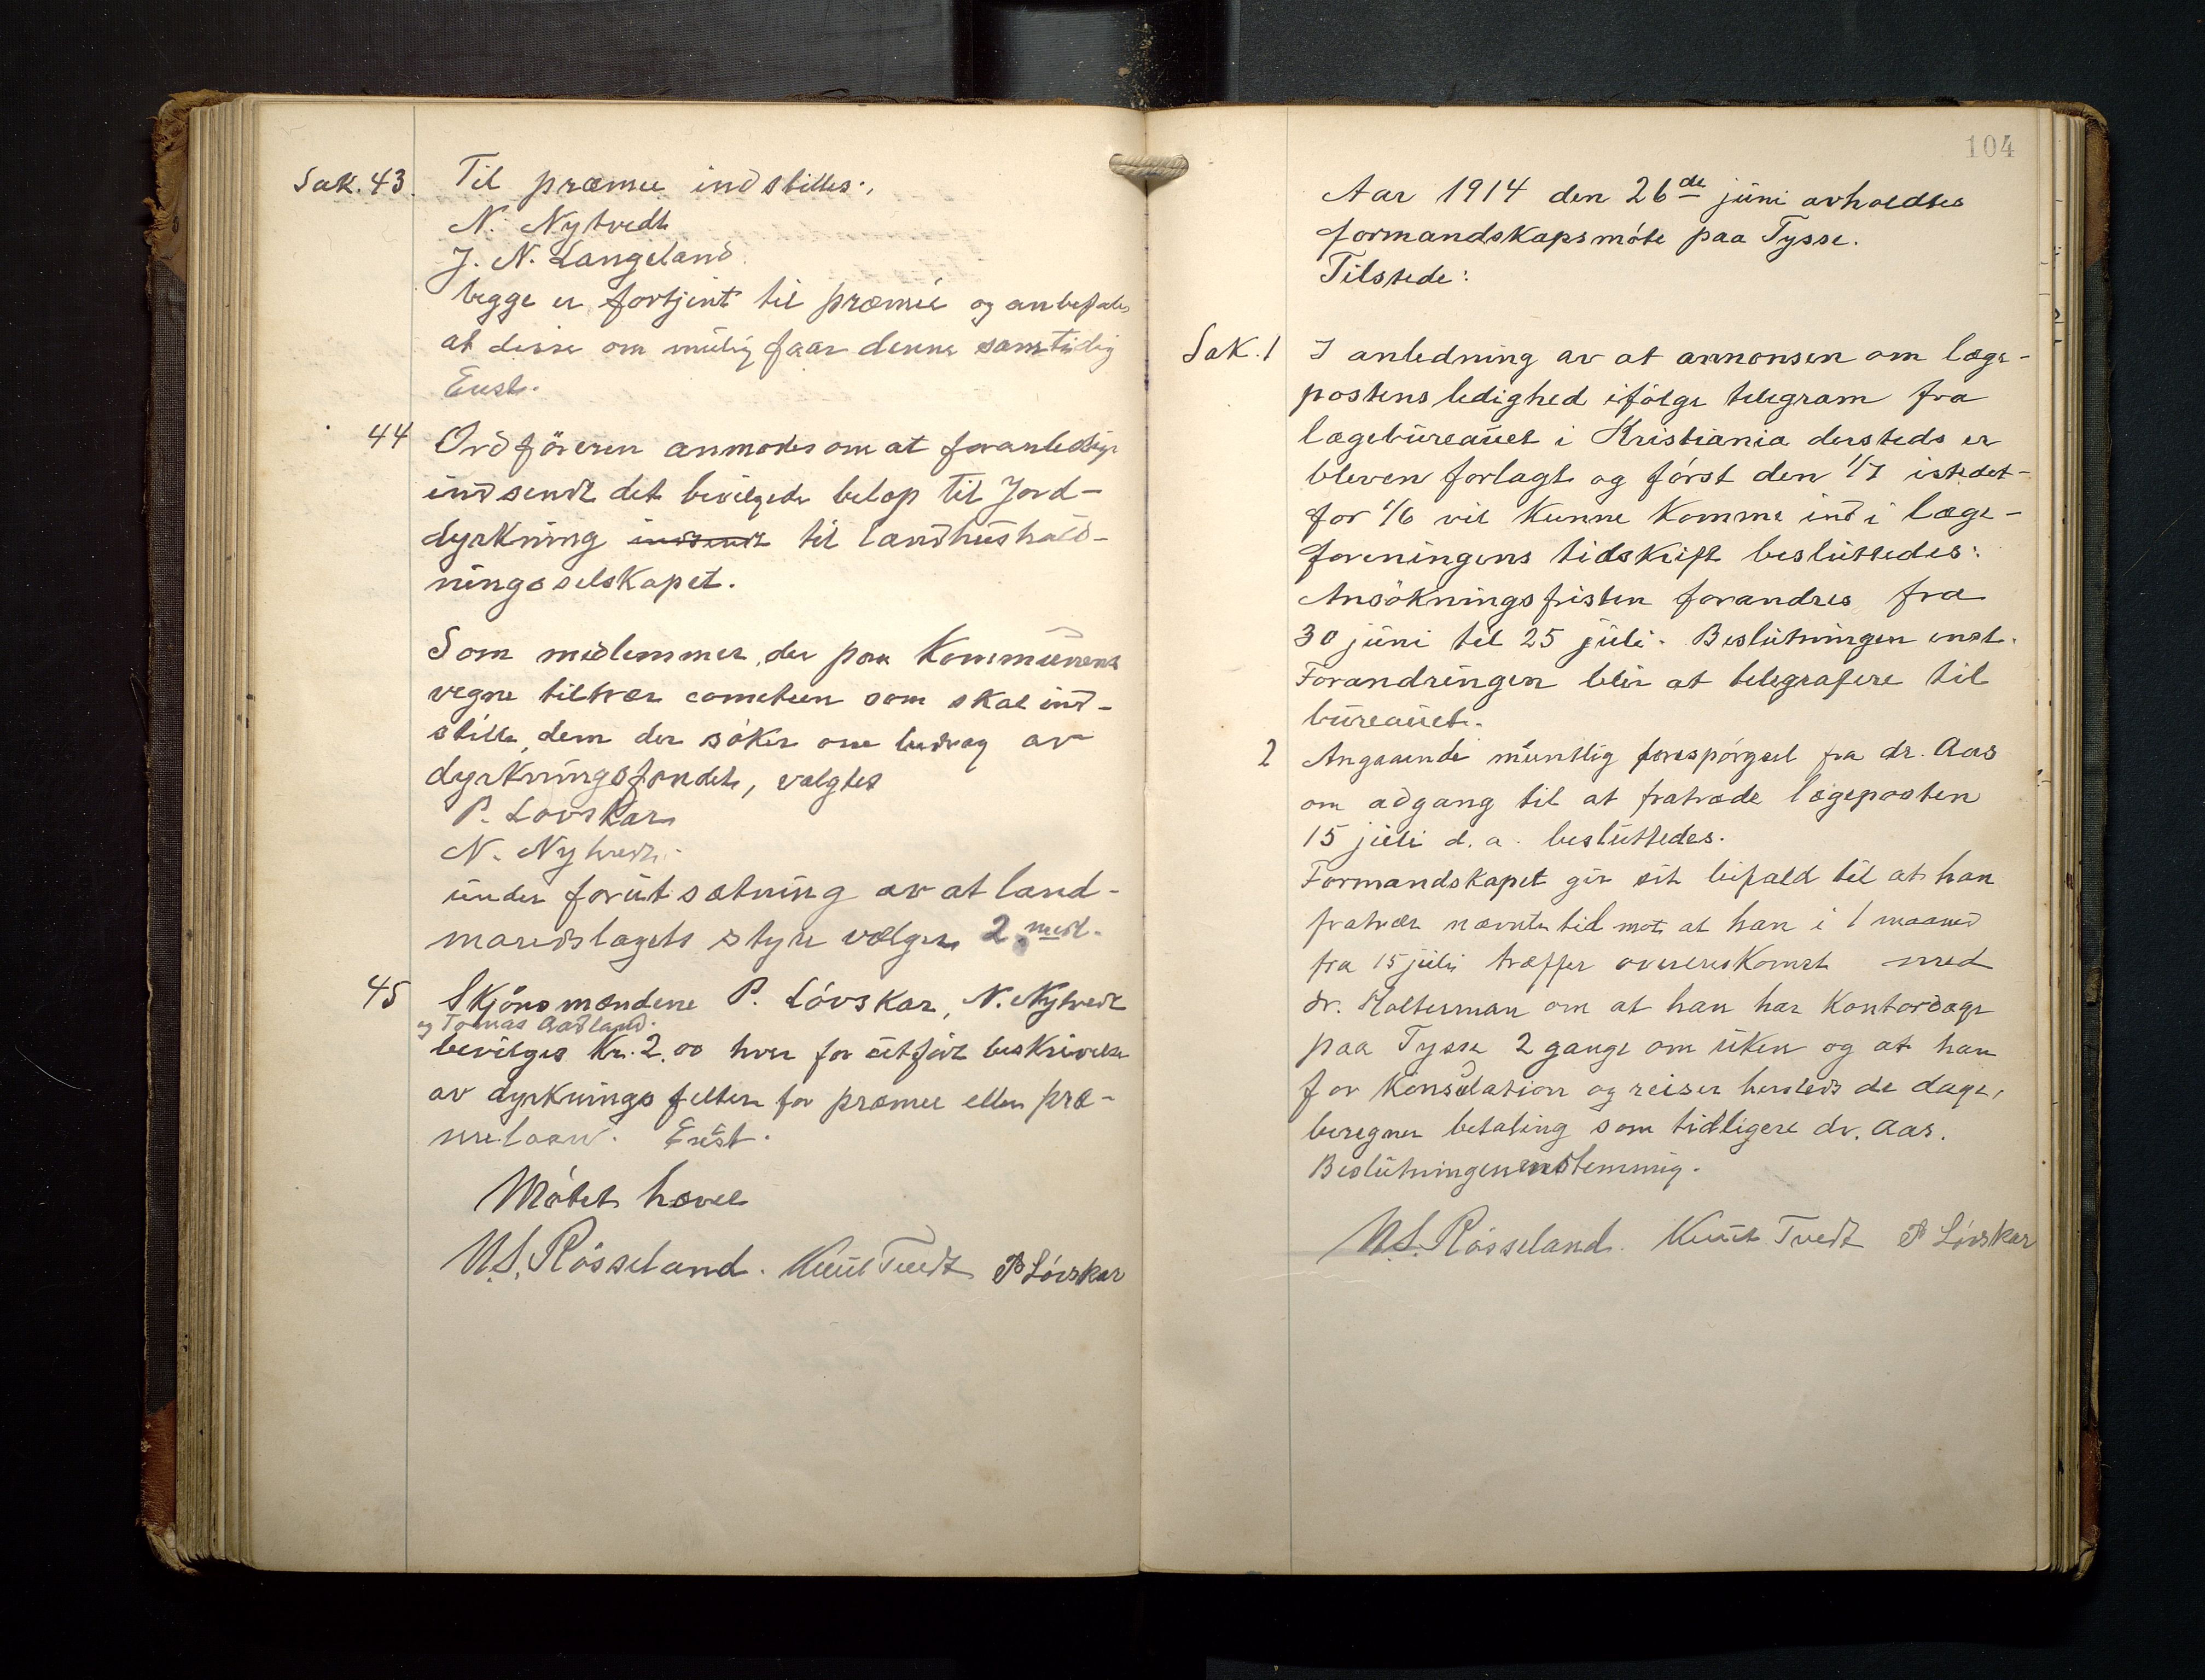 Sak. 43. Til præmie indstilles:,
N. Nytvedt
J. N. Langeland.
begge er fortjent til præmie og anbefales
at disse om mulig faar denne samtidig
Enst.
44 Ordføreren anmodes om at foranledige
indsendt det bevilgede beløp til Jord-
dyrkning indsendt til landhushold-
ningsselskapet.
Som medlemmer, der paa Kommunens
vegne tiltrær cometeen som skal ind-
stille, dem der søker om bidrag av
dyrkningsfondet, valgtes
P. Lövskar
N. Nytvedt.
under forutsætning av at land-
mandslagets styre vælger 2 medl.
45 Skjönsmændene P. Lövskar, N. Nytvedt
og Tomas Aadland.
bevilges Kr. 2.00 hver for utført beskrivelse
av dyrknings felter for præmie eller præ-
mielaan. Enst.
Møtet hævet
N.S. Rösseland. Knut Tvedt P Lövskar
104
Aar 1914 den 26de juni avholdtes
formandskapsmöte paa Tysse.
Tilstede:
Sak. 1 I anledning av at annonsen om læge-
postens ledighed ifölge telegram fra
lægebureauet i Kristiania dersteds er
bleven forlagt og först den 1/7 istedet-
for 1/6 vil kunne komme ind i læge-
foreningens tidskrift besluttedes:
Ansökningsfristen forandres fra
30 juni til 25 juli. Beslutningen enst.
Forandringen blir at telegrafere til
bureauet.
2 Angaaende muntlig forespörgsel fra dr. Aas
om adgang til at fratræde lægeposten
15 juli d. a. besluttedes.
Formandskapet gir sit bifald til at han
fratrær nævnte tid mot at han i 1 maaned
fra 15 juli træffer overenskomst med
dr. Holterman om at han har kontordage
paa Tysse 2 gange om uken og at han
for konsulation og reiser hersteds de dage,
beregner betaling som tidligere dr. Aas.
Beslutningen enstemmig.
N.S. Rösseland. Knut Tvedt P Lövskar